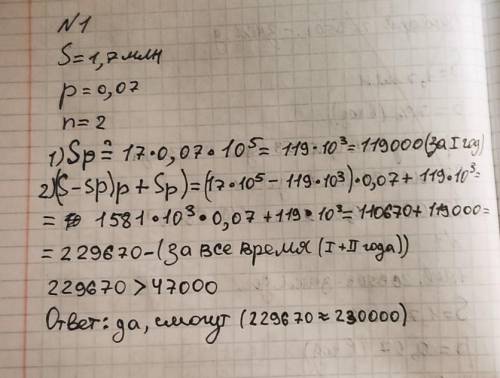 N1
S=1,7 млн
p=0,07
n=2
1) Sp = 17·0,07·10⁵ = 119·10³ = 119000 (за I год)
2) (S-Sp)p + Sp) = (17·10⁵ - 119·10³)·0,07 + 119·10³ =
= 1581·10³·0,07 + 119·10³ = 110670 + 119000 =
= 229670 - (за все время (I+II года))
229670 > 47000
Ответ: да, смогут (229670 ≈ 230000)